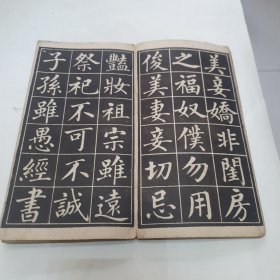 美妾嬌非閨房
之福奴僕勿用
俊美妻妾切忌
豔妝祖宗雖遠
祭祀不可不誠
子孫雖愚經書